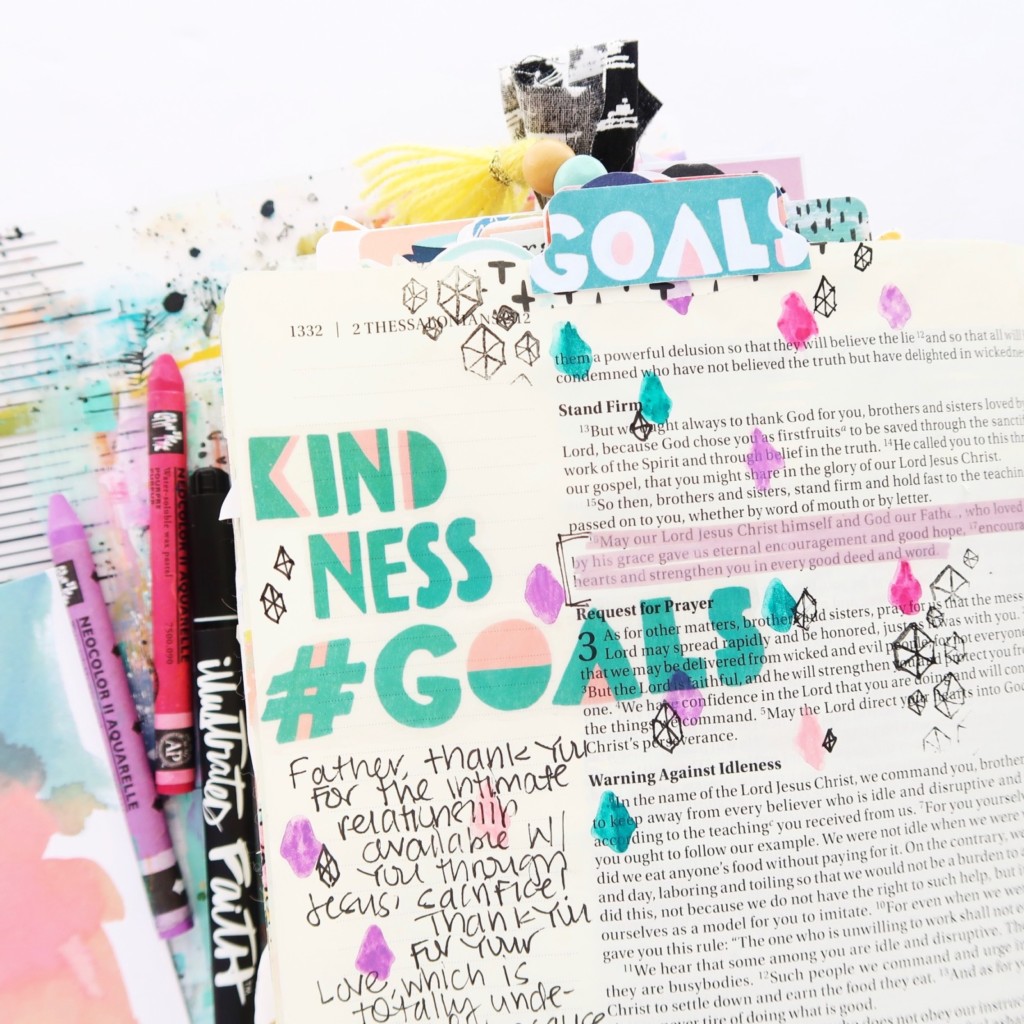 GOALS
1332 | 2 THESSALONIANS 2:12
KIND
NESS
#GOALS
Father, thank you
for the intimate
relationship
available w/
you through
Jesus' sacrifice!
Thank you
for your
Love, which is
totally unde-
them a powerful delusion so that they will believe the lie 12 and so that all will
condemned who have not believed the truth but have delighted in
Stand Firm
13 But we ought always to thank God for you, brothers and sisters loved
Lord, because God chose you as firstfruits a to be saved through the
work of the Spirit and through belief in the truth. 14 He called you to this
our gospel, that you might share in the glory of our Lord Jesus Christ.
15 So then, brothers and sisters, stand firm and hold fast to the
passed on to you, whether by word of mouth or by letter.
16 May our Lord Jesus Christ himself and God our Father, who loved
by his grace gave us eternal encouragement and good hope, 17
hearts and strengthen you in every good deed and word.
Request for Prayer
3 As for other matters, brothers and sisters, pray for us that the
Lord may spread rapidly and be honored, just as it was with you.
that we may be delivered from wicked and evil people, for not everyone
3 But the Lord is faithful, and he will strengthen you and protect you
one. 4 We have confidence in the Lord that you are doing and will
the things we command. 5 May the Lord direct your hearts into
Christ's perseverance.
Warning Against Idleness
6 In the name of the Lord Jesus Christ, we command you,
to keep away from every believer who is idle and disruptive and
according to the teaching c you received from us. 7 For you
you ought to follow our example. We were not idle when we were
did we eat anyone's food without paying for it. On the contrary,
and day, laboring and toiling so that we would not be a burden to
did this, not because we do not have the right to such help, but
ourselves as a model for you to imitate. 10 For even when we
gave you this rule: "The one who is unwilling to work shall not
11 We hear that some among you are idle and disruptive.
they are busybodies. 12 Such people we command and urge
Christ to settle down and earn the food they eat. 13 And as for
never tire of doing what is good.
NEOCOLOR II AQUARELLE
Water-soluble wax pastel
7500.090
AP
NEOCOLOR II AQUARELLE
illustrated FAITH